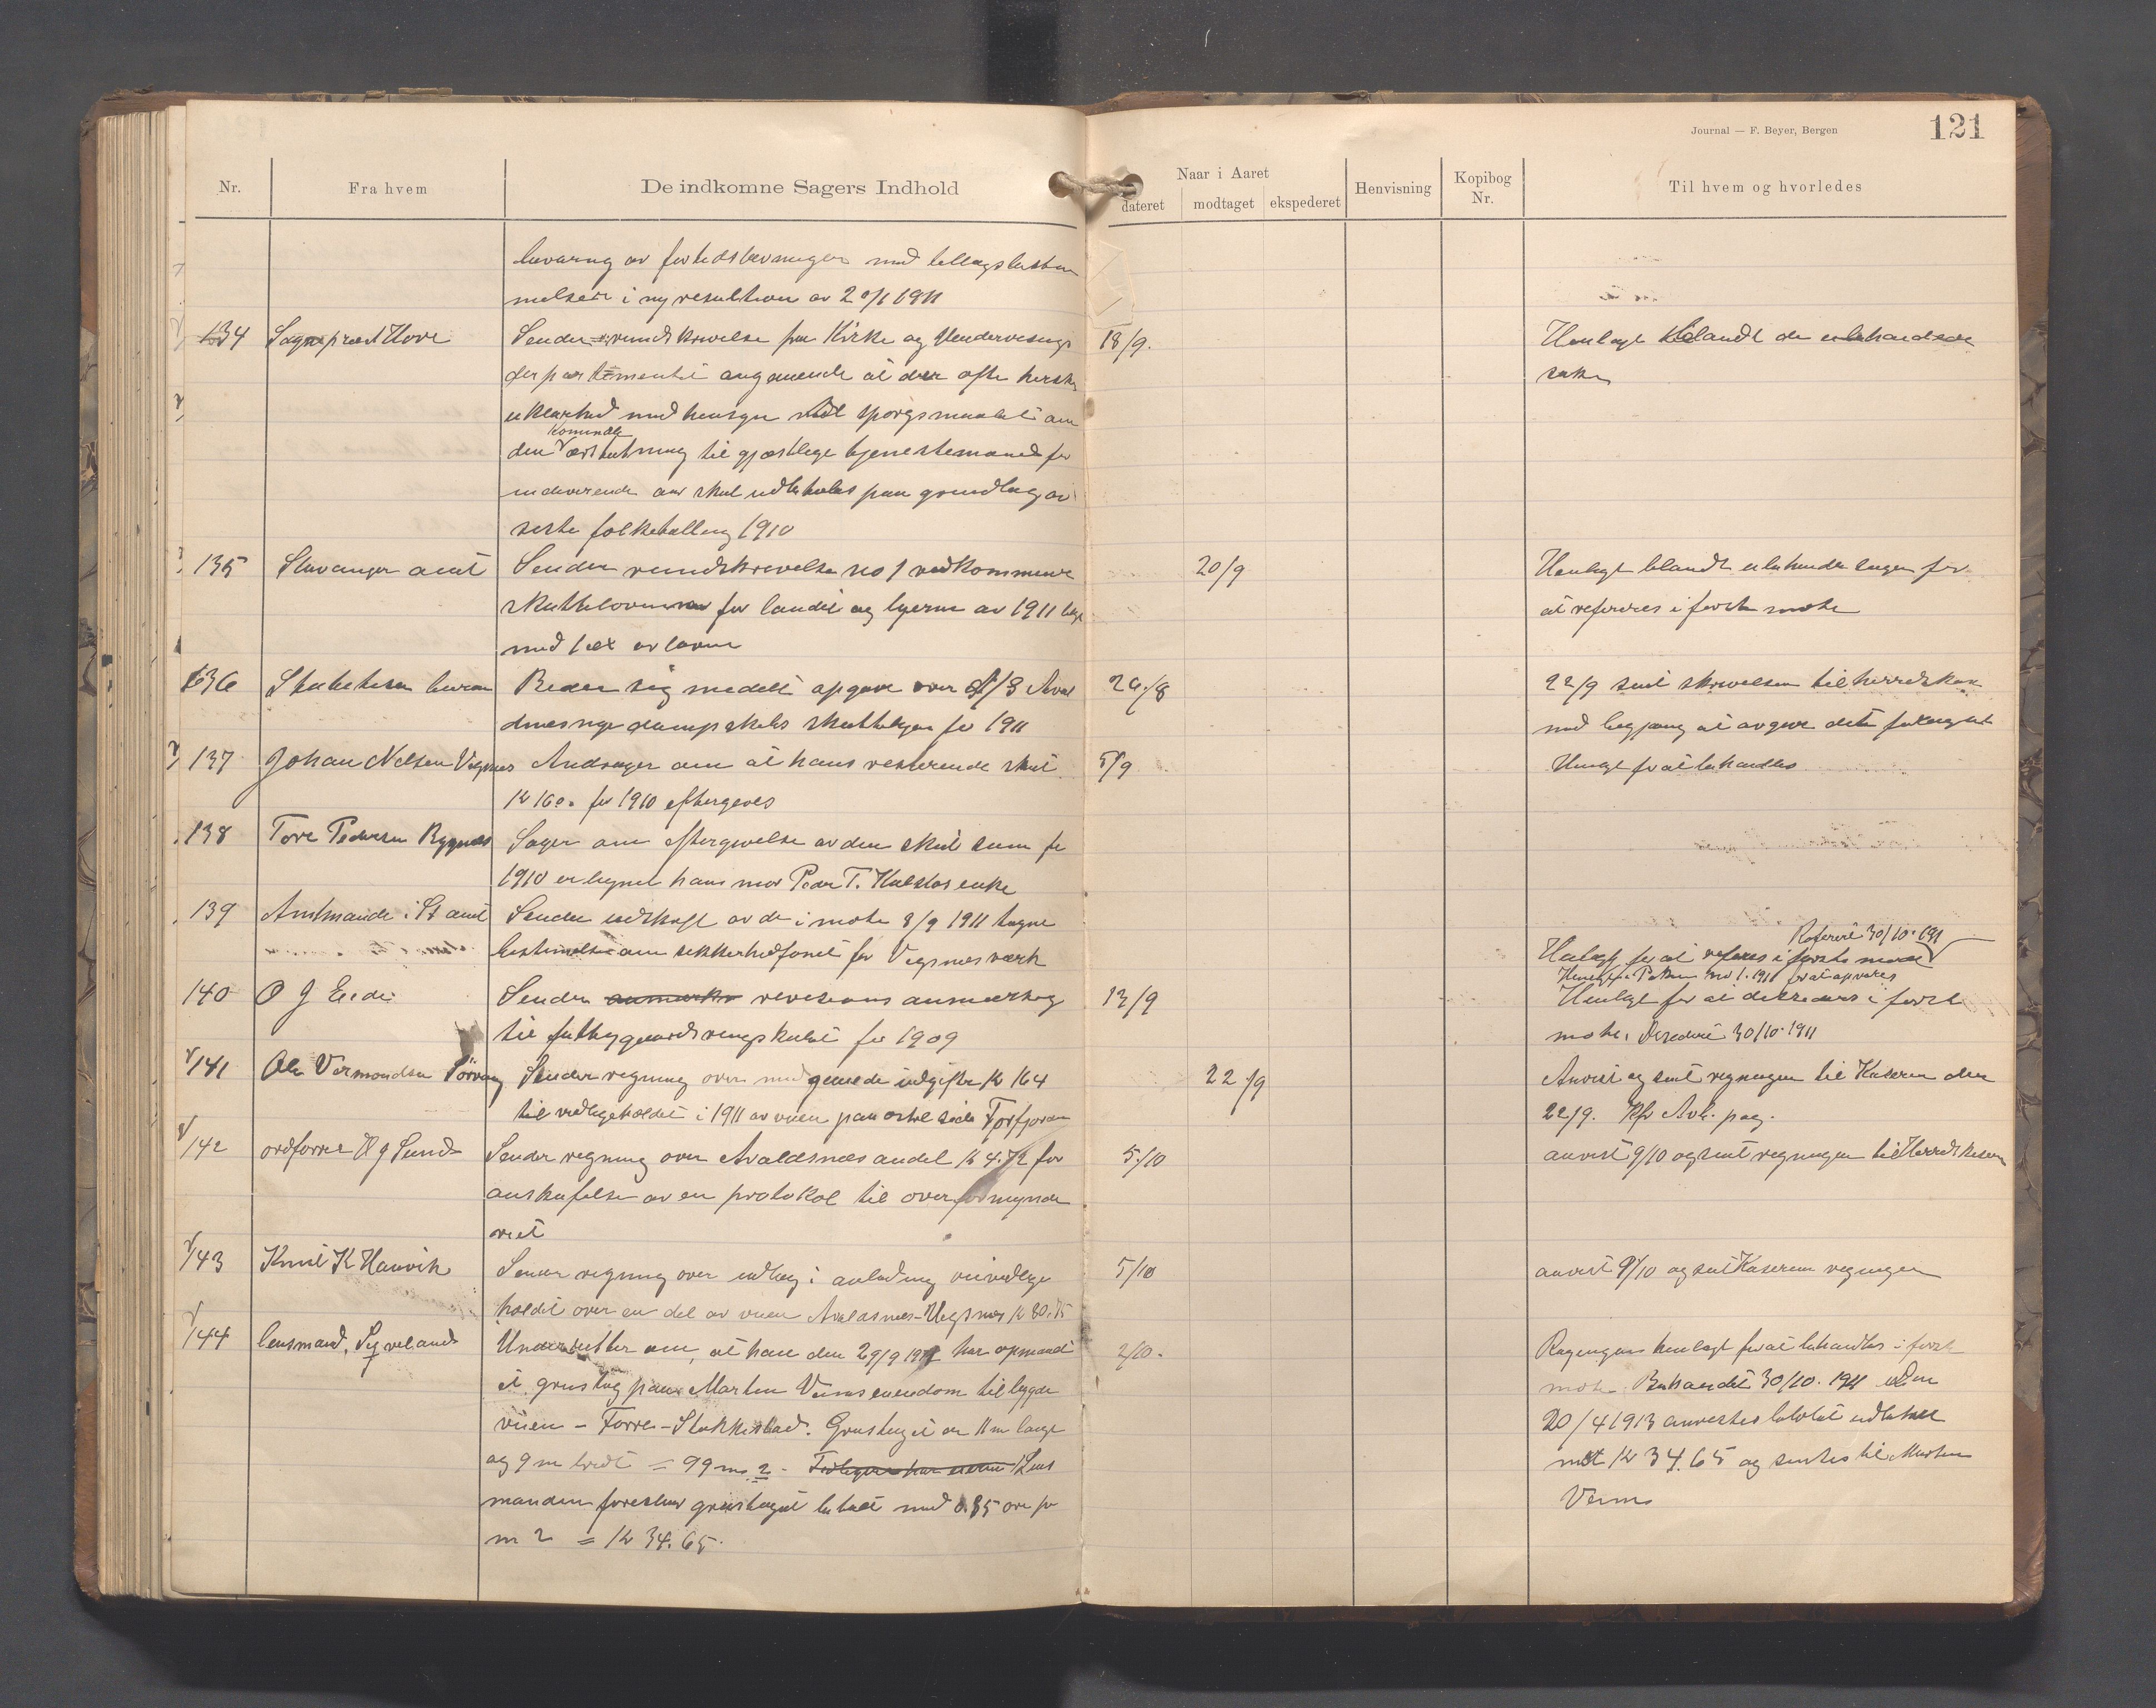 Journal — F. Beyer, Bergen
121
Nr.
Fra hvem
De indkomne Sagers Indhold
Naar i Aaret
dateret
modtaget
ekspederet
Henvisning
Kopibog
Nr.
Til hvem og hvorledes
i ny resolution av 20/1 1911
134 Sogneprest Hove
Sender rundskrivelse fra Kirke og Undervisnings
18/9.
Henlagt blandt de
saker
departementet angaaende at der ofte hersker
uklarhed med hensyn til spørgsmaalet om
Komunale
den til gjestlige tjenestemænd for
indeværende aar skal udbetales paa grundlag av
siste folketælling 1910
135 Stavanger amt
Sender rundskrivelse no 1 vedkommende
20/9
Henlagt blandt ubehandlede sager for
skatteloverne for landet og byerne av 1911
at refereres i første møte
med av lovene
136
Beder sig meddelt opgave over A/S Aval
24/8
22/9 sent skrivelsen til herredskas
dampskibs skattelegen for 1911
med begjæring at avgive det forlangte
137 Johan Nelsen Vignes
Andrager om at hans resterende skat
5/9
Henlagt for at behandles
kr 16.00 for 1910 eftergives
138 Tore Pedersen Rygnes
Søger om eftergivelse av den skat som for
1910 er lignet hans mor Peder T. Kalstos enke
139 Amtmanden i St amt
Sender udskrift av de i møte 8/9 1911 tagne
Refereret 30/10. 1911
bestemmelse om sikkerhedsfonet for Vigsnes værk
Henlagt for at referes i første møte
Henlagt i Pakken no 1. 1911 for at opvares
140 O J Eide
Sender anmerkn revisions anmerkning
13/9
Henlagt for at desideres i første
til fattigguardsregnskabet for 1909
møte. Desideret 30/10. 1911
141 Ole Vermondsen Førreng
Sender regning over medgaaede udgifter kr 164
22/9
Anvist og sent regningen til Kaserer den
til vedligeholdet i 1911 av veien paa østre side Førfjorden
22/9. Kfr Avh. pag.
142 ordfører O J Sund
Sender regning over Avaldsnes andel kr 4.72 for
5/10
anvist 9/10 og sent regningen til Herredskaserer
anskafelse av en protokol til overformynde
riet
143 Knut K Hauvik
Sender regning over udlæg i anledning veivedlige
5/10
anvist 9/10 og sent Kaserer regningen
holdet over en del av veien Avaldsnes-Vigsnes kr 80.75
144 lensmand Sigveland
Underretter om, at han den 29/9 1911 har opmaalt
2/10.
Regningen henlagt for at behandles i første
et grustag paa Marten Veims eiendom til bygde
møte. Behandlet 30/10. 1911 Den
veien - Førre - Stakkestad. Grustaget er 11 m langt
20/4 1913 anvistes beløbet udbetalt
og 9 m bredt = 99 m 2 - Lens
med kr 34.65 og sendes til Marten
manden foreslaar grustaget betalt med 0.35 øre pr
Veims
m 2 = kr 34.65.